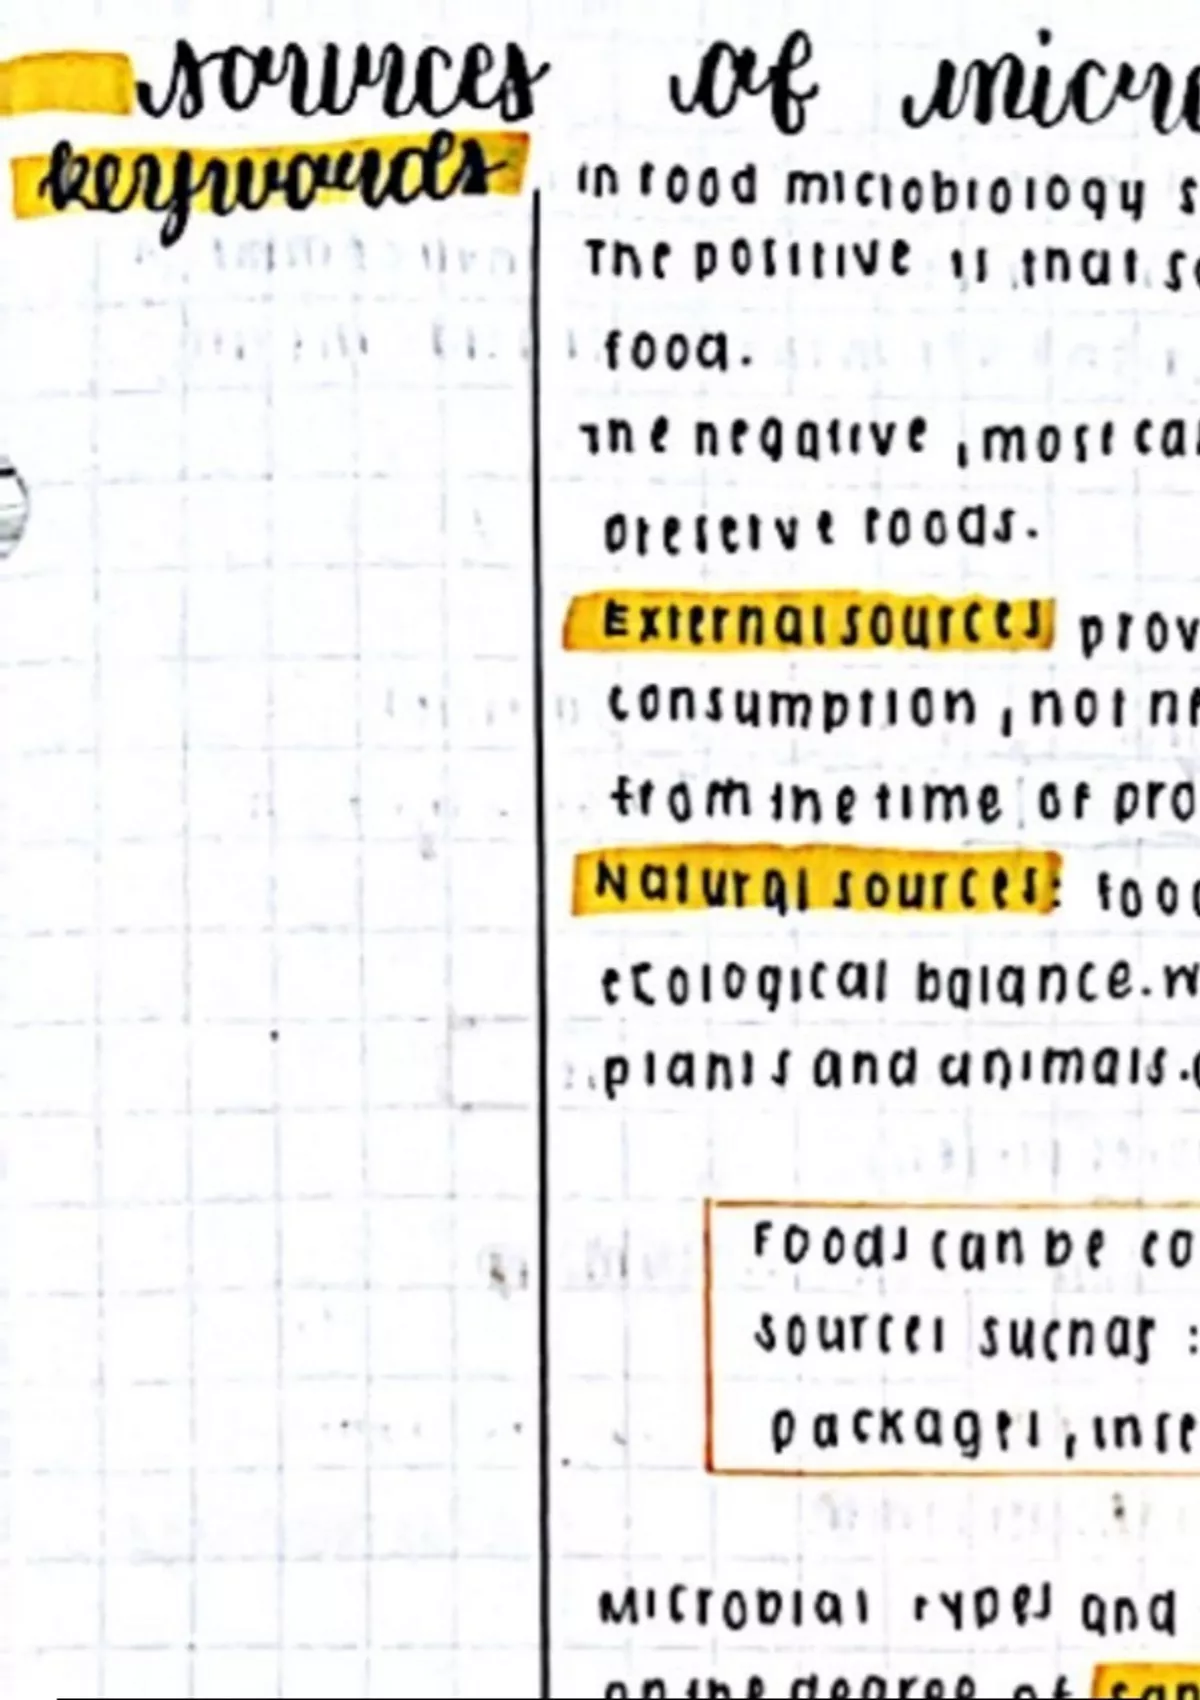 sources of micro
keywords
In food microbiology s
The positive is that so
food.
The negative, most ca
preserve foods.
External sources prov
consumption, not ne
from the time of pro
Natural sources: food
ecological balance. w
plants and animals.
Foods can be co
sources such as :
packages, inse
Microbial types and
on the degree of san